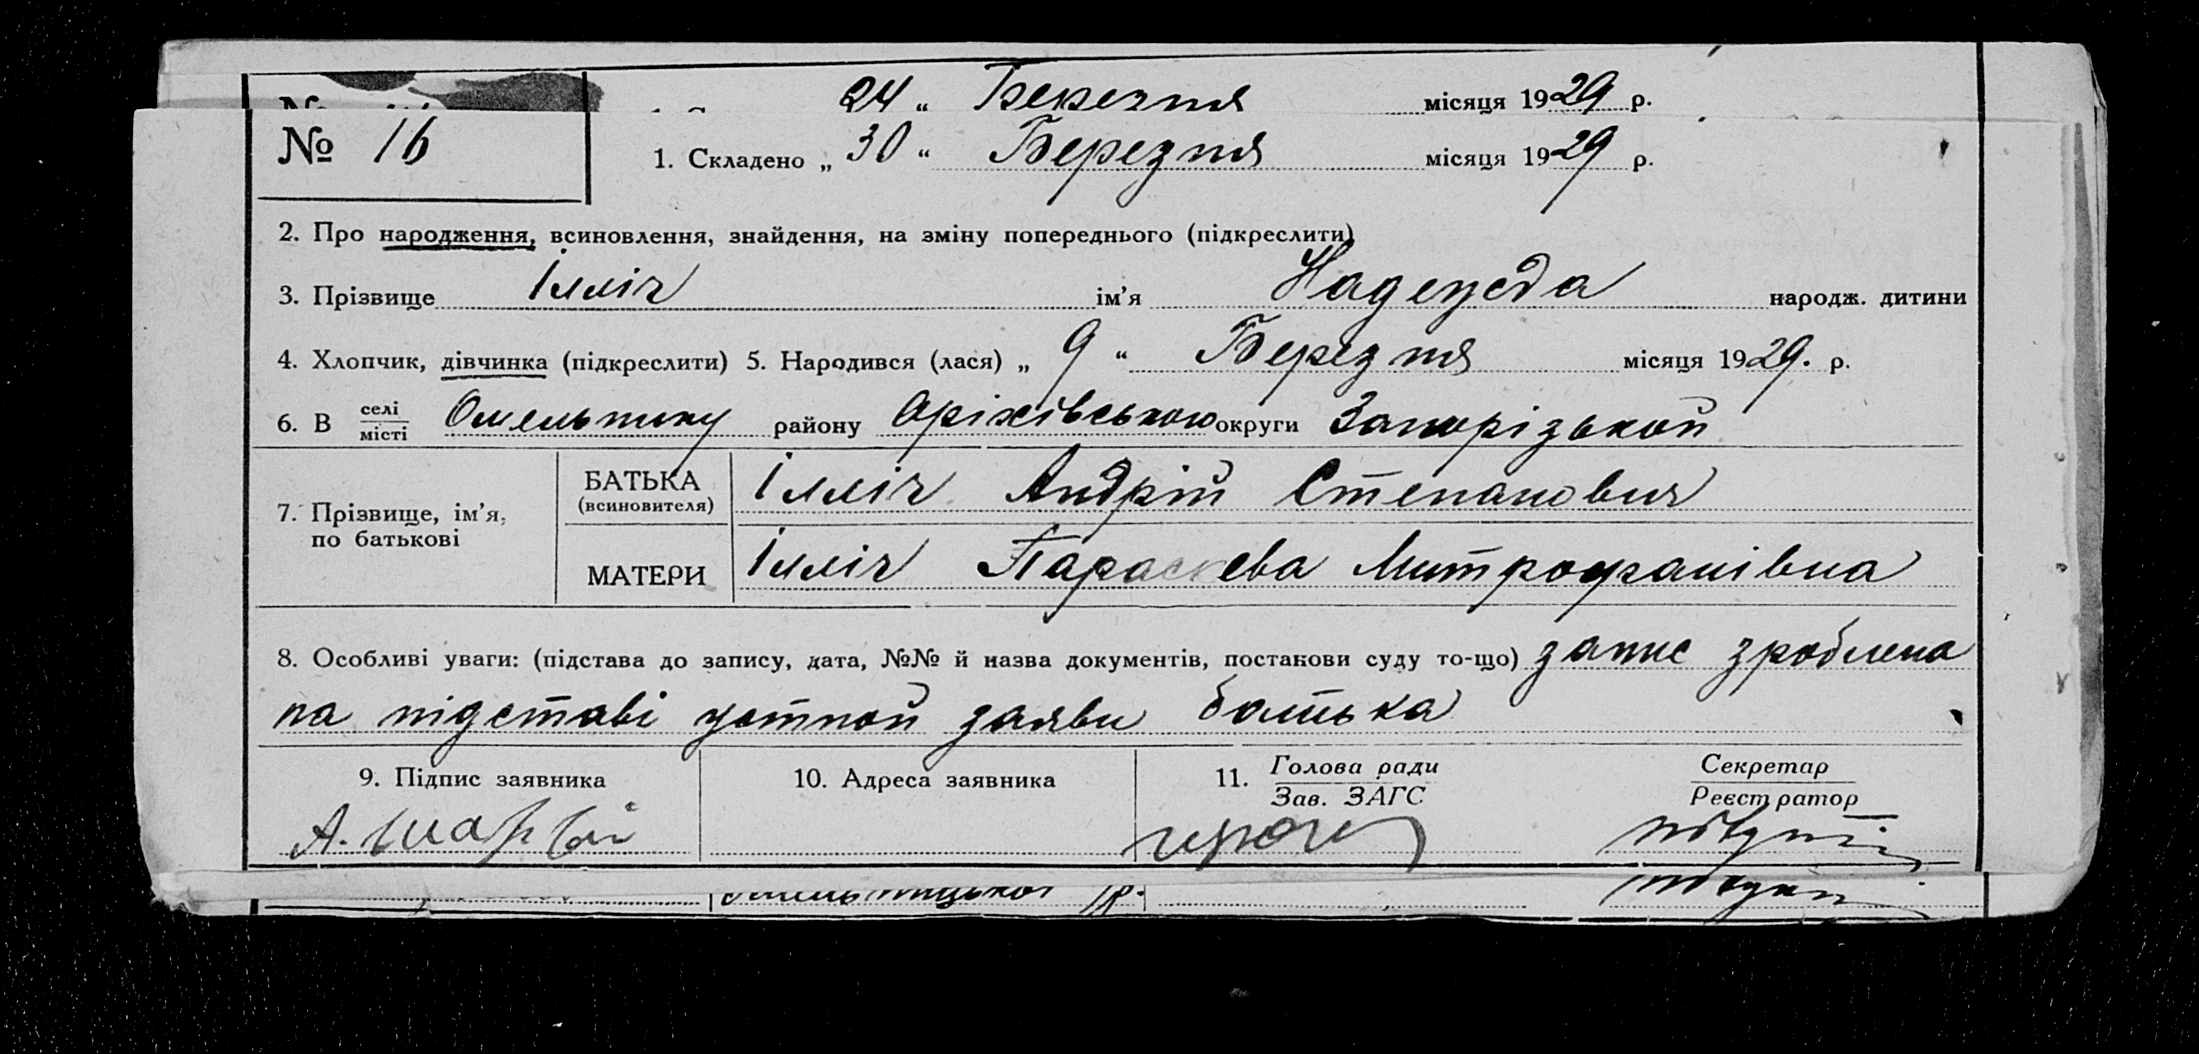 24 " Березня місяця 1929 р.
№ 16
1. Складено „ 30 " Березня місяця 1929 р.
2. Про народження, всиновлення, знайдення, на зміну попереднього (підкреслити)
3. Прізвище Ілліч ім'я Надежда народж. дитини
4. Хлопчик, дівчинка (підкреслити) 5. Народився (лася) „ 9 " Березня місяця 1929. р.
6. В селі / місті Омельнику району Оріхівського округи Запорізькой
7. Прізвище, ім'я, по батькові
БАТЬКА (всиновителя) Ілліч Андрій Степанович
МАТЕРИ Ілліч Параскева Митрофанівна
8. Особливі уваги: (підстава до запису, дата, №№ й назва документів, постанови суду то-що) запис зроблено
на підставі устной заяви батька
9. Підпис заявника 10. Адреса заявника 11. Голова ради / Зав. ЗАГС Секретар / Реєстратор